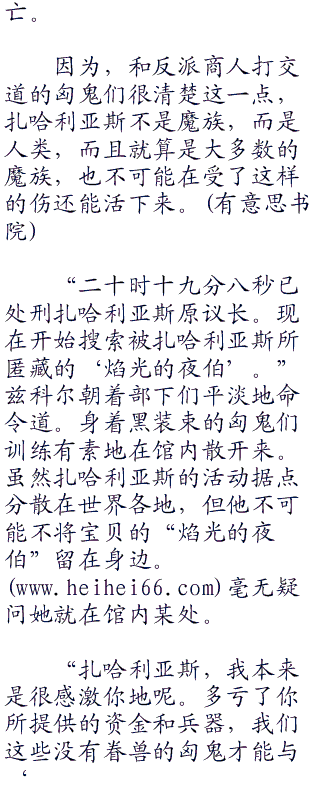 亡。
因为，和反派商人打交
道的匈鬼们很清楚这一点，
扎哈利亚斯不是魔族，而是
人类，而且就算是大多数的
魔族，也不可能在受了这样
的伤还能活下来。(有意思书
院)
“二十时十九分八秒已
处刑扎哈利亚斯原议长。现
在开始搜索被扎哈利亚斯所
匿藏的‘焰光的夜伯’。”
兹科尔朝着部下们平淡地命
令道。身着黑装束的匈鬼们
训练有素地在馆内散开来。
虽然扎哈利亚斯的活动据点
分散在世界各地，但他不可
能不将宝贝的“焰光的夜
伯”留在身边。
(www.heihei66.com)毫无疑
问她就在馆内某处。
“扎哈利亚斯，我本来
是很感激你地呢。多亏了你
所提供的资金和兵器，我们
这些没有眷兽的匈鬼才能与
‘